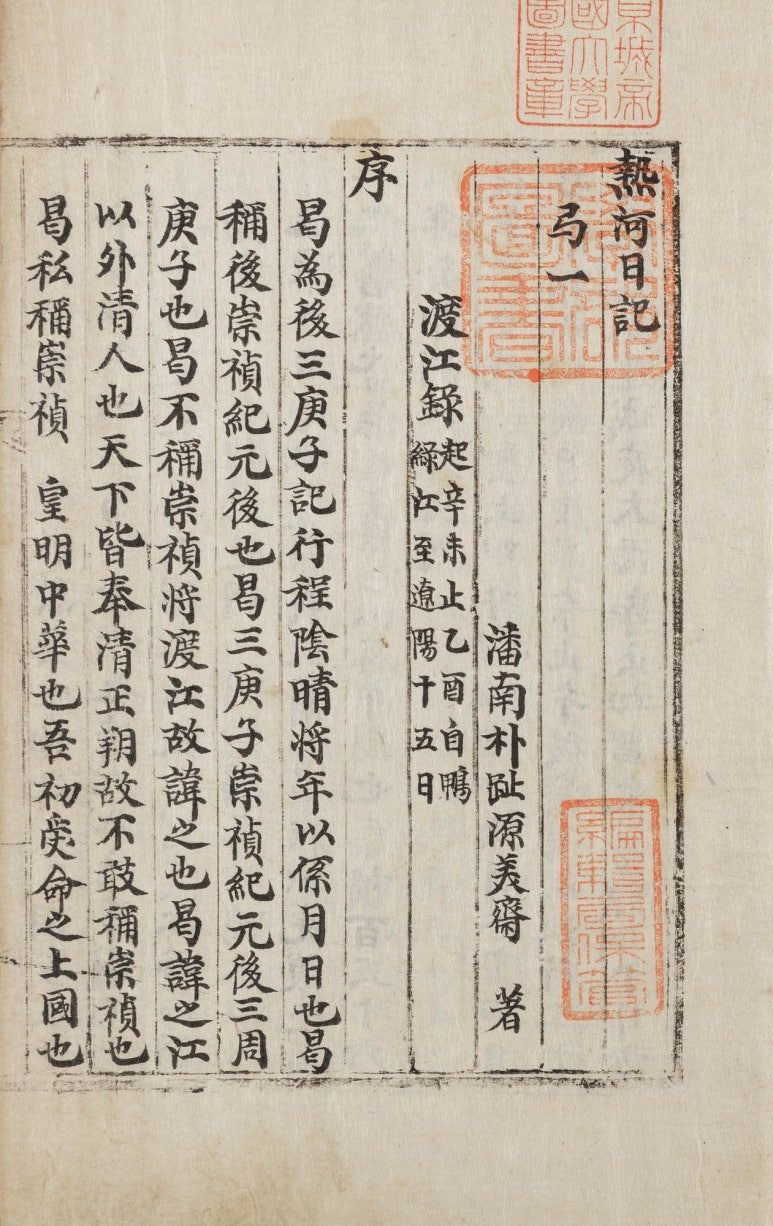 京城帝
國大學
圖書章
熱河日記
弓一
潘南朴趾源美齋 著
渡江錄 起辛未止乙酉自鴨
綠江至遼陽十五日
序
曷為後三庚子記行程陰晴將年以係月日也曷
稱後崇禎紀元後也曷三庚子崇禎紀元後三周
庚子也曷不稱崇禎將渡江故諱之也曷諱之江
以外清人也天下皆奉清正朔故不敢稱崇禎也
曷私稱崇禎 皇明中華也吾初受命之上國也